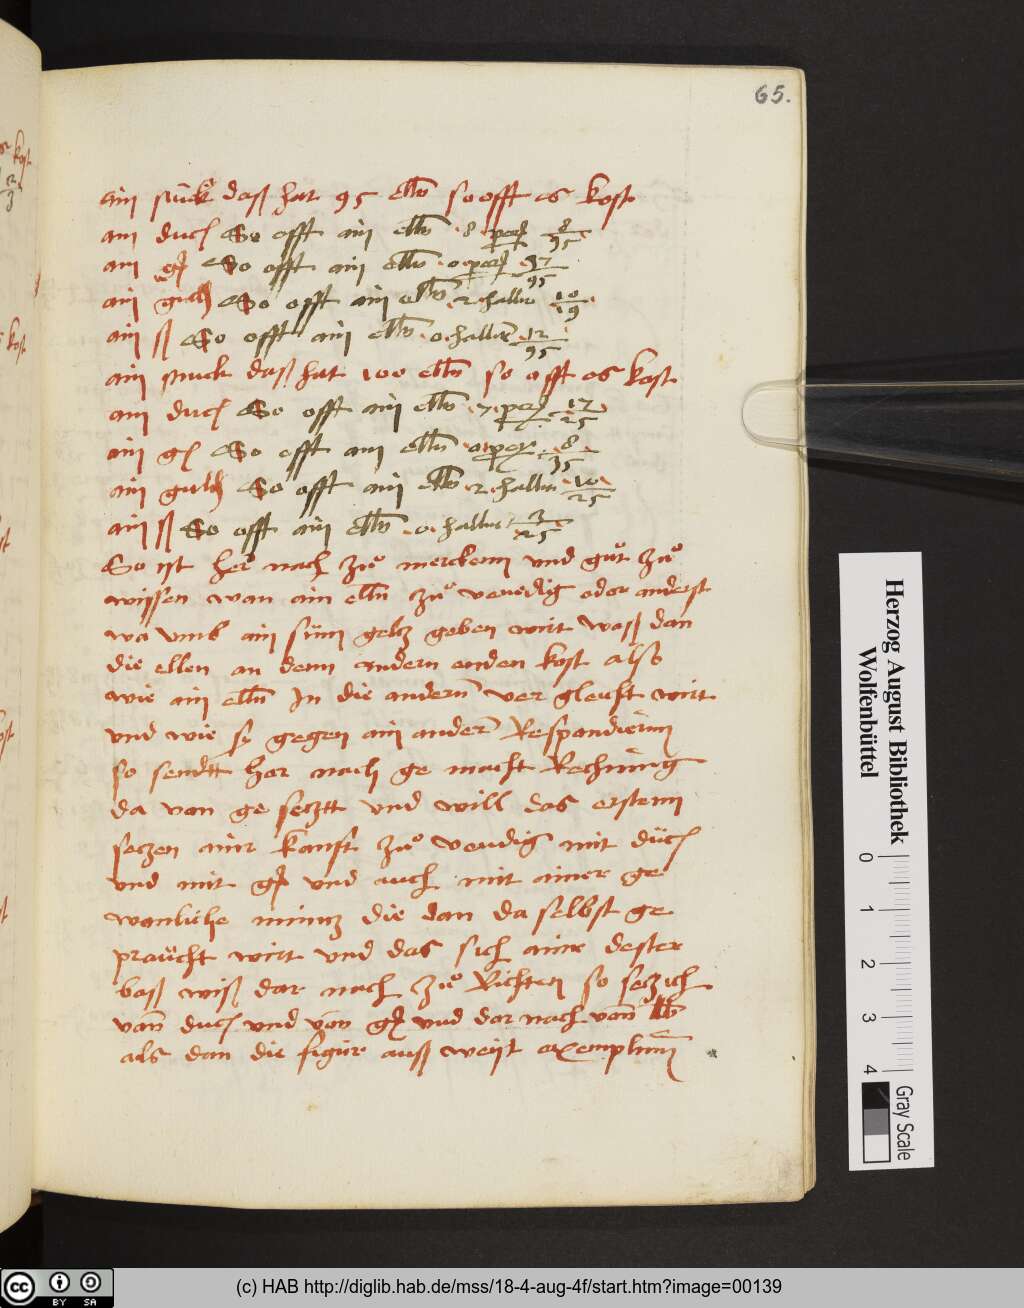 65.
ain stuck daß hat 95 elln so offt es kost
ain duc So offt ain elln 8 8/95
ain gß So offt ain elln 0 57/95
ain guld So offt ain elln 2 haller 10/19
ain ß So offt ain elln 0 haller 12/95
ain stuck daß hat 100 elln so offt es kost
ain duc So offt ain elln 7 17/25
ain gß So offt ain elln 0 8/15
ain guld So offt ain elln 2 haller 10/25
ain ß So offt ain elln 0 haller 3/25
So ist her nach zuo mercken und guot zuo
wissen wan ain elln zuo venedig oder anderst
wa umb ain sum geltz geben wirt waß dan
die ellen an denn andern enden kost alß
wie ain elln In die andern ver gleicht wirt
und wie sy gegen ain ander Respondieren
so sendtt her nach ge macht Rechnung
da von ge setztt und will das erstenn
setzen ainr kauft zuo venedig mit duc
und mit gß und auch mit ainer ge
wonliche muntz die dan da selbst ge
praucht wirt und das sich ainr dester
baß wiß dar nach zuo Richten so setz ich
vonn duc und von gß und dar nach vonn lb
als dan die figur auß weist exemplum
Herzog August Bibliothek
Wolfenbüttel
0 1 2 3 4
Gray Scale
(c) HAB http://diglib.hab.de/mss/18-4-aug-4f/start.htm?image=00139
cc BY SA